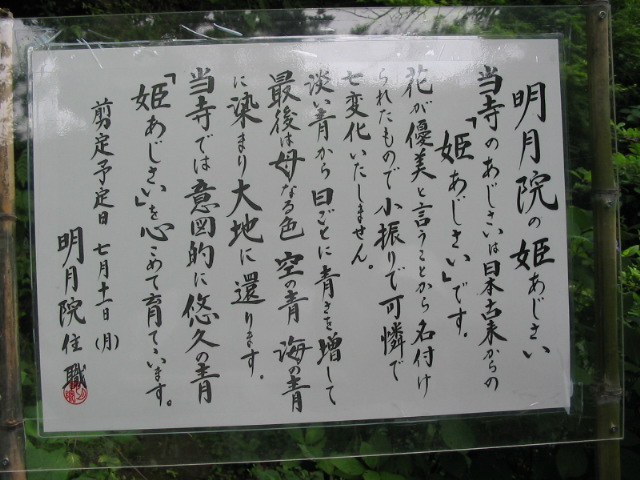 明月院の姫あじさい
当寺のあじさいは日本古来からの
「姫あじさい」です。
花が優美と言うことから名付け
られたもので小振りで可憐で
七変化いたしません。
淡い青から日ごとに青さを増して
最後は母なる色 空の青 海の青
に染まり大地に還ります。
当寺では意図的に悠久の青
「姫あじさい」を心こめて育てています。
剪定予定日 七月十一日(月)
明月院住職